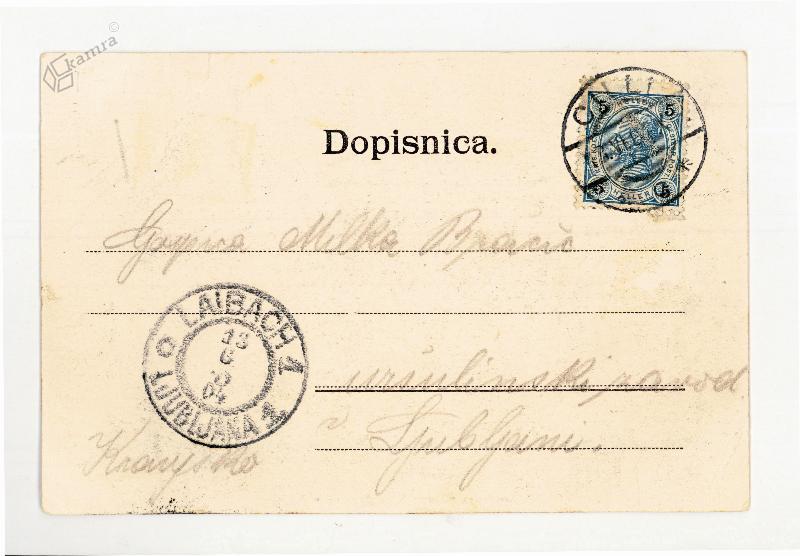 kamra
5 5
CILLI
HELLER
Dopisnica.
Gospica Milka Bračič
LAIBACH 1
13
6
04
LJUBLJANA 1
uršulinski zavod
v Ljubljani.
Kranjsko